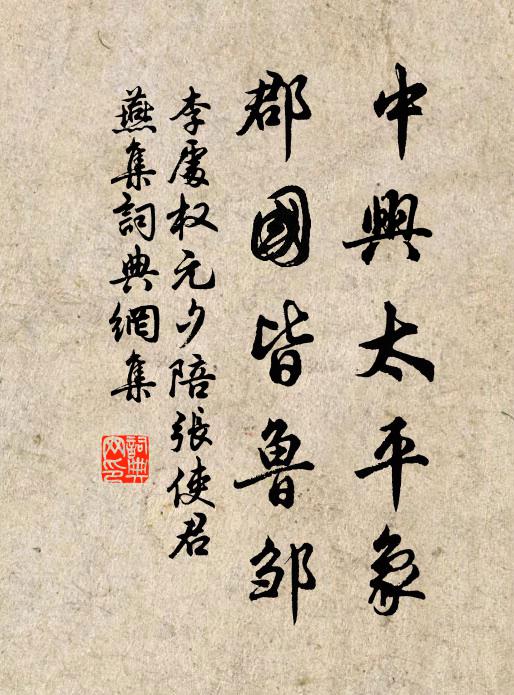 中興太平象
郡國皆魯邹
李處权元夕陪張使君
燕集詞典網集
詞典
网印